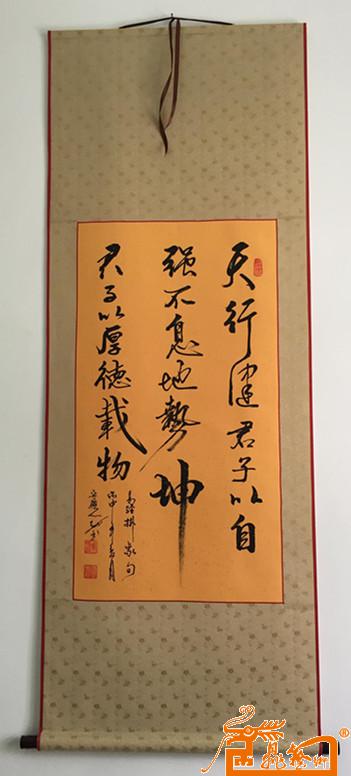 天行健君子以自
强不息地勢坤
君子以厚德載物
易經摘家句
丙申年